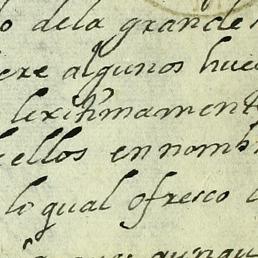 o dela grande
iere algunos hue
lexitimamente
ellos en nomb
lo qual ofresco
aunqu